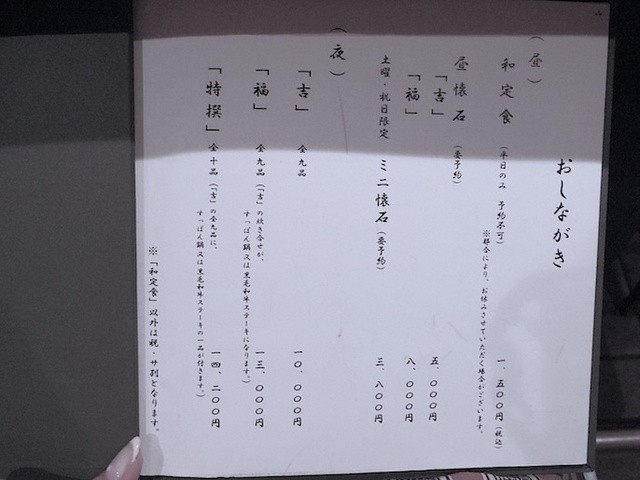 おしながき
（昼）
和定食 （平日のみ 予約不可） 一、五〇〇円（税込）
※都合により、お休みさせていただく場合がございます。
昼懐石 （要予約）
「吉」 五、〇〇〇円
「福」 八、〇〇〇円
土曜・祝日限定 ミニ懐石 （要予約） 三、八〇〇円
（夜）
「吉」 全九品 一〇、〇〇〇円
「福」 全九品 （「吉」の炊き合せが、
すっぽん鍋又は黒毛和牛ステーキになります。） 一三、〇〇〇円
「特撰」 全十品 （「吉」の全九品に、
すっぽん鍋又は黒毛和牛ステーキの一品が付きます。） 一四、二〇〇円
※「和定食」以外は税・サ別となります。